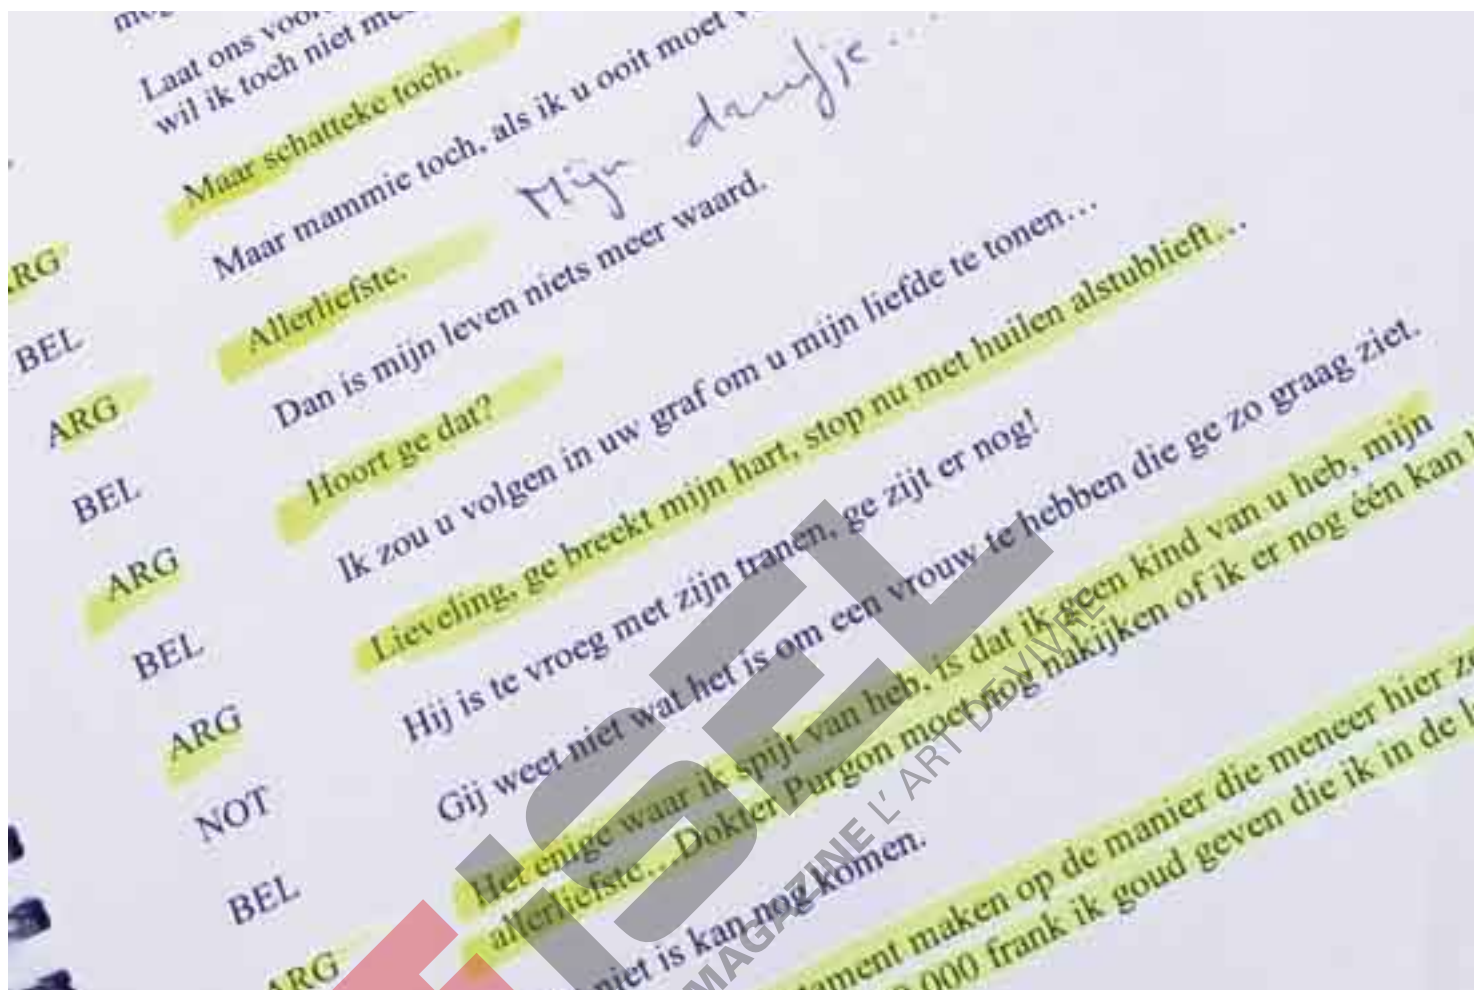 Laat ons
wil ik toch niet
ARG Maar schatteke toch.
BEL Maar mammie toch, als ik u ooit moet
ARG Allerliefste. Mijn duifje...
BEL Dan is mijn leven niets meer waard.
ARG Hoort ge dat?
BEL Ik zou u volgen in uw graf om u mijn liefde te tonen...
ARG Lieveling, ge breekt mijn hart, stop nu met huilen alstublieft...
NOT Hij is te vroeg met zijn tranen, ge zijt er nog!
BEL Gij weet niet wat het is om een vrouw te hebben die ge zo graag ziet.
ARG Het enige waar ik spijt van heb, is dat ik geen kind van u heb, mijn
allerliefste...Dokter Purgon moet nog nakijken of ik er nog één kan
niet is kan nog komen.
maken op de manier die meneer hier
000 frank ik goud geven die ik in de
MAGAZINE L'ART DE VIVRE